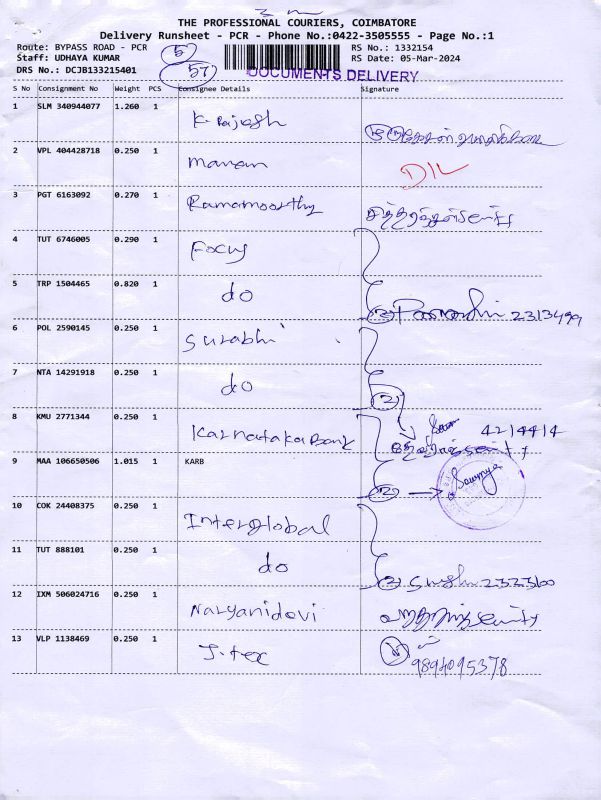 THE PROFESSIONAL COURIERS, COIMBATORE
Delivery Runsheet - PCR - Phone No.:0422-3505555 - Page No.:1
Route: BYPASS ROAD - PCR 5 RS No.: 1332154
Staff: UDHAYA KUMAR RS Date: 05-Mar-2024
DRS No.: DCJB133215401 57 DOCUMENTS DELIVERY
S No Consignment No Weight PCS Consignee Details Signature
1 SLM 340944077 1.260 1 K. Rajesh
2 VPL 404428718 0.250 1 Manan D/L
3 PGT 6163092 0.270 1 Ramamoorthy
4 TUT 6746005 0.290 1 Focus
5 TRP 1504465 0.820 1 do 2 2313499
6 POL 2590145 0.250 1 Surabhi
7 NTA 14291918 0.250 1 do 2
8 KMU 2771344 0.250 1 Karnataka Bank 4214414
9 MAA 106650506 1.015 1 KARB 2 Sowmya
10 COK 24408375 0.250 1 Interglobal
11 TUT 888101 0.250 1 do 2
12 IXM 506024716 0.250 1 Naryanidevi
13 VLP 1138469 0.250 1 J.tex 9894095378